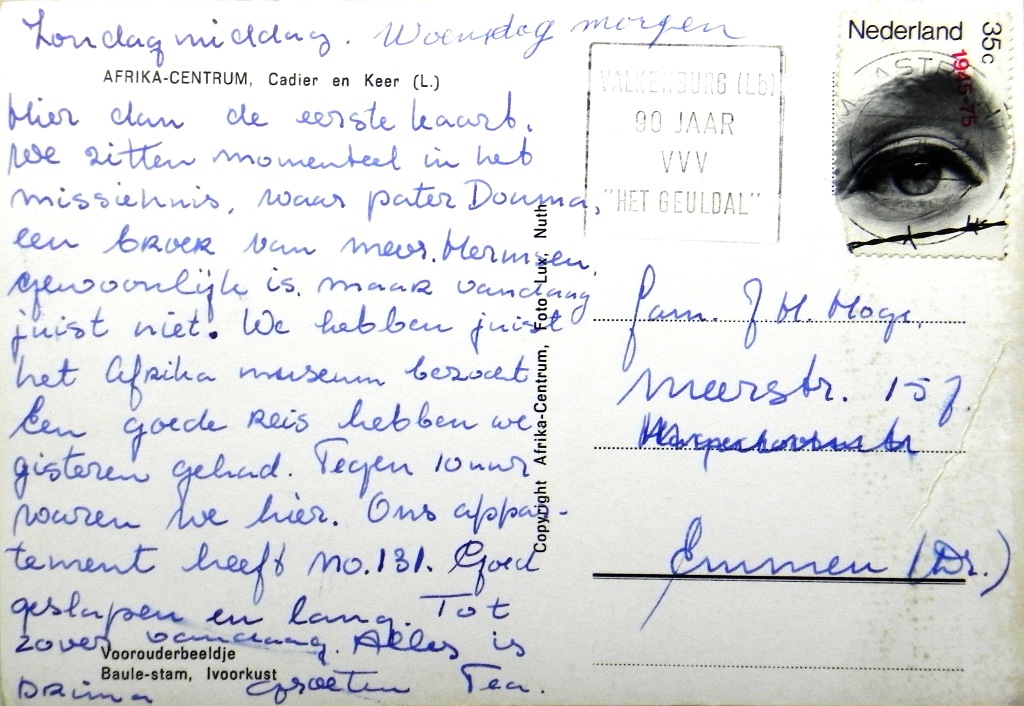 Zondag middag. Woensdag morgen
AFRIKA-CENTRUM, Cadier en Keer (L.)
Hier dan de eerste kaart.
We zitten momenteel in het
missiehuis, waar pater Douma,
een broer van mevr. Hermsen,
gewoonlijk is, maar vandaag
juist niet. We hebben juist
het Afrika museum bezocht
Een goede reis hebben we
gisteren gehad. Tegen 10 uur
waren we hier. Ons appar-
tement heeft no. 131. Goed
geslapen en lang. Tot
zover vandaag. Alles is
prima Groeten Tea.
Voorouderbeeldje
Baule-stam, Ivoorkust
Copyright Afrika-Centrum, Foto Lux, Nuth
VALKENBURG (Lb)
90 JAAR
VVV
"HET GEULDAL"
Nederland 35c
1945-75
Fam. J H. Hoge.
Meerstr. 157.
Emmen (Dr.)